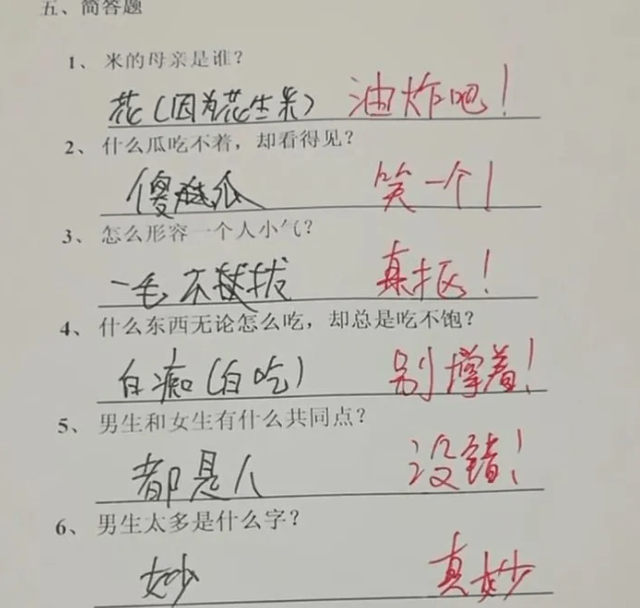 五、简答题
1、米的母亲是谁？
花（因为花生米） 油炸吧！
2、什么瓜吃不着，却看得见？
傻瓜 笑一个！
3、怎么形容一个人小气？
一毛不拔 真抠！
4、什么东西无论怎么吃，却总是吃不饱？
白痴（白吃） 别撑着！
5、男生和女生有什么共同点？
都是人 没错！
6、男生太多是什么字？
妙 真妙